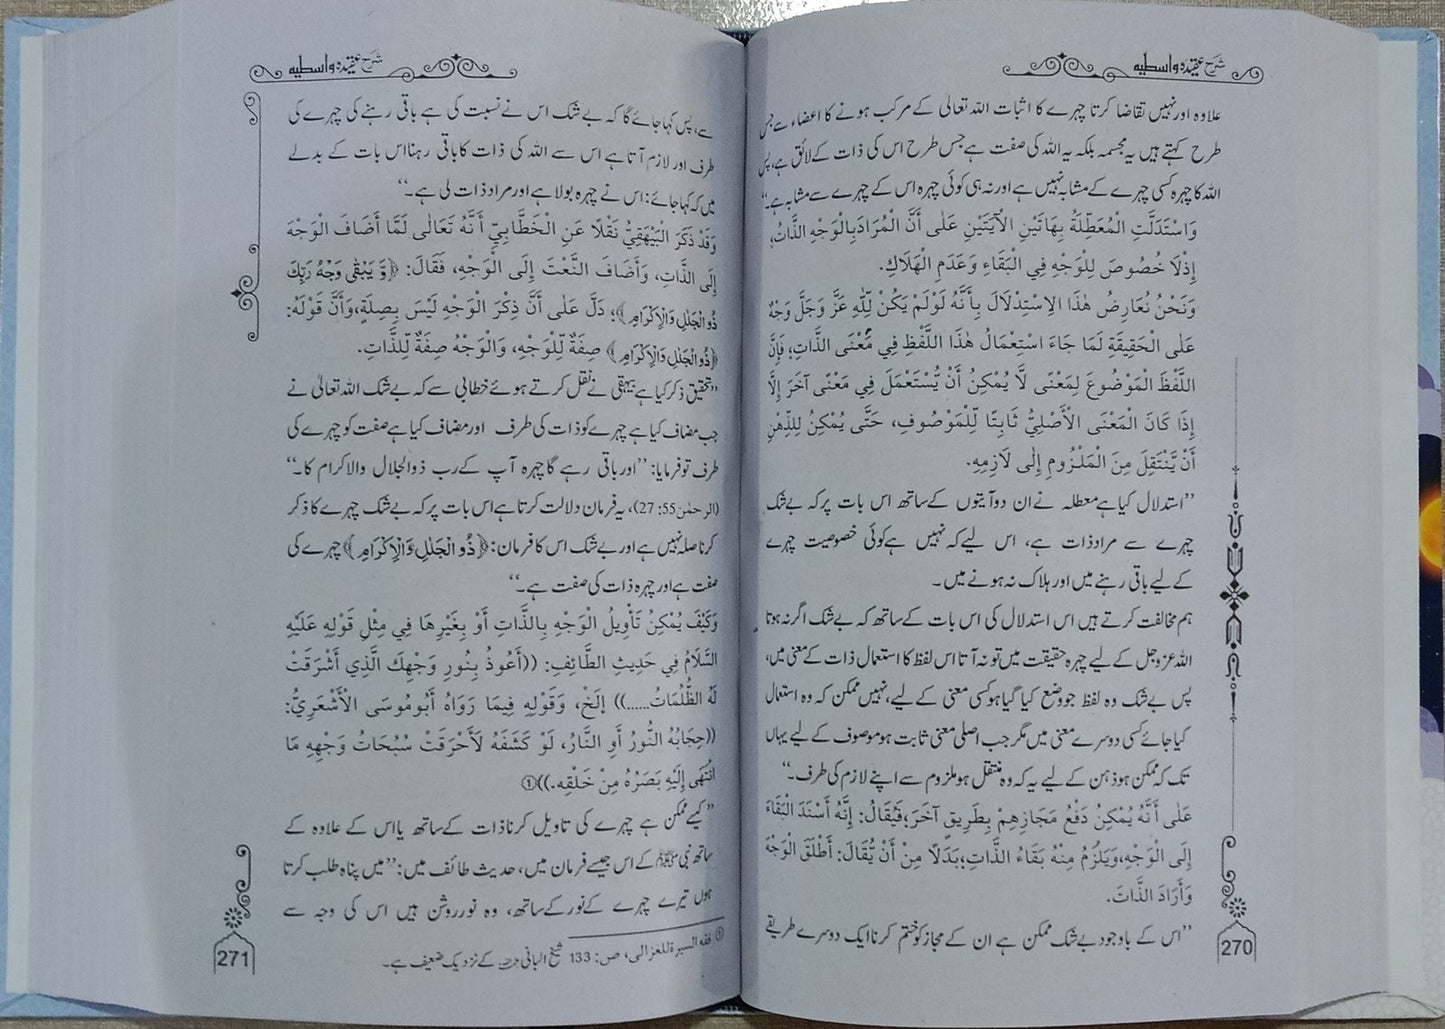 شرح عقیدہ واسطیہ
علاوہ اور نہیں تقاضا کرتا چہرے کا اثبات اللہ تعالیٰ کے مرکب ہونے کا اعضاء سے جس
طرح کہتے ہیں یہ مجسمہ بلکہ یہ اللہ کی صفت ہے جس طرح اس کی ذات کے لائق ہے، پس
اللہ کا چہرہ کسی چہرے کے مشابہ نہیں ہے اور نہ ہی کوئی چہرہ اس کے چہرے سے مشابہ ہے۔‘‘
وَاسْتَدَلَّتِ الْمُعَطِّلَةُ بِهَاتَيْنِ الْآيَتَيْنِ عَلٰى أَنَّ الْمُرَادَ بِالْوَجْهِ الذَّاتُ؛
إِذْ لَا خُصُوصَ لِلْوَجْهِ فِي الْبَقَاءِ وَعَدَمِ الْهَلَاكِ.
وَنَحْنُ نُعَارِضُ هٰذَا الِاسْتِدْلَالَ بِأَنَّهُ لَوْ لَمْ يَكُنْ لِلّٰهِ عَزَّ وَجَلَّ وَجْهٌ
عَلَى الْحَقِيقَةِ لَمَا جَاءَ اسْتِعْمَالُ هٰذَا اللَّفْظِ فِي مَّعْنَى الذَّاتِ؛ فَإِنَّ
اللَّفْظَ الْمَوْضُوعَ لِمَعْنًى لَّا يُمْكِنُ أَنْ يُّسْتَعْمَلَ فِي مَعْنًى آخَرَ إِلَّا
إِذَا كَانَ الْمَعْنَى الْأَصْلِيُّ ثَابِتًا لِّلْمَوْصُوفِ، حَتَّى يُمْكِنُ لِلذِّهْنِ
أَنْ يَّنْتَقِلَ مِنَ الْمَلْزُومِ إِلٰى لَازِمِهِ.
’’استدلال کیا ہے معطلہ نے ان دو آیتوں کے ساتھ اس بات پر کہ بے شک
چہرے سے مراد ذات ہے، اس لیے کہ نہیں ہے کوئی خصوصیت چہرے
کے لیے باقی رہنے میں اور ہلاک نہ ہونے میں۔
ہم مخالفت کرتے ہیں اس استدلال کی اس بات کے ساتھ کہ بے شک اگر نہ ہوتا
اللہ عزوجل کے لیے چہرہ حقیقت میں تو نہ آتا اس لفظ کا استعمال ذات کے معنی میں،
پس بے شک وہ لفظ جو وضع کیا گیا ہو کسی معنی کے لیے، نہیں ممکن کہ وہ استعمال
کیا جائے کسی دوسرے معنی میں مگر جب اصلی معنی ثابت ہو موصوف کے لیے یہاں
تک کہ ممکن ہو ذہن کے لیے یہ کہ وہ منتقل ہو ملزوم سے اپنے لازم کی طرف۔‘‘
عَلٰى أَنَّهُ يُمْكِنُ دَفْعُ مَجَازِهِمْ بِطَرِيقٍ آخَرَ؛ فَيُقَالُ: إِنَّهُ أَسْنَدَ الْبَقَاءَ
إِلَى الْوَجْهِ، وَيَلْزَمُ مِنْهُ بَقَاءُ الذَّاتِ؛ بَدَلًا مِنْ أَنْ تُقَالَ: أَطْلَقَ الْوَجْهَ
وَأَرَادَ الذَّاتَ.
’’اس کے باوجود بے شک ممکن ہے ان کے مجاز کو ختم کرنا ایک دوسرے طریقے
270
شرح عقیدہ واسطیہ
سے، پس کہا جائے گا کہ بے شک اس نے نسبت کی ہے باقی رہنے کی چہرے کی
طرف اور لازم آتا ہے اس سے اللہ کی ذات کا باقی رہنا اس بات کے بدلے
میں کہ کہا جائے: اس نے چہرہ بولا ہے اور مراد ذات لی ہے۔‘‘
وَقَدْ ذَكَرَ الْبَيْهَقِيُّ نَقْلًا عَنِ الْخَطَّابِيِّ أَنَّهُ تَعَالٰى لَمَّا أَضَافَ الْوَجْهَ
إِلَى الذَّاتِ، وَأَضَافَ النَّعْتَ إِلَى الْوَجْهِ، فَقَالَ: ﴿وَّ يَبْقٰى وَجْهُ رَبِّكَ
ذُو الْجَلٰلِ وَالْاِكْرَامِ﴾؛ دَلَّ عَلٰى أَنَّ ذِكْرَ الْوَجْهِ لَيْسَ بِصِلَةٍ، وَأَنَّ قَوْلَهُ:
﴿ذُو الْجَلٰلِ وَالْاِكْرَامِ﴾ صِفَةٌ لِّلْوَجْهِ، وَالْوَجْهُ صِفَةٌ لِّلذَّاتِ.
’’تحقیق ذکر کیا ہے بیہقی نے نقل کرتے ہوئے خطابی سے کہ بے شک اللہ تعالیٰ نے
جب مضاف کیا ہے چہرے کو ذات کی طرف اور مضاف کیا ہے صفت کو چہرے کی
طرف تو فرمایا: ’’اور باقی رہے گا چہرہ آپ کے رب ذوالجلال والاکرام کا۔‘‘
(الرحمٰن55: 27)، یہ فرمان دلالت کرتا ہے اس بات پر کہ بے شک چہرے کا ذکر
کرنا صلہ نہیں ہے اور بے شک اس کا فرمان: ﴿ذُو الْجَلٰلِ وَالْاِكْرَامِ﴾ چہرے کی
صفت ہے اور چہرہ ذات کی صفت ہے۔‘‘
وَكَيْفَ يُمْكِنُ تَأْوِيلُ الْوَجْهِ بِالذَّاتِ أَوْ بِغَيْرِهَا فِي مِثْلِ قَوْلِهِ عَلَيْهِ
السَّلَامُ فِي حَدِيثِ الطَّائِفِ: ((أَعُوذُ بِنُورِ وَجْهِكَ الَّذِي أَشْرَقَتْ
لَهُ الظُّلُمَاتُ......)) إلَخْ، وَقَوْلِهِ فِيمَا رَوَاهُ أَبُو مُوسَى الْأَشْعَرِيُّ:
((حِجَابُهُ النُّورُ أَوِ النَّارُ، لَوْ كَشَفَهُ لَأَحْرَقَتْ سُبُحَاتُ وَجْهِهِ مَا
انْتَهَى إِلَيْهِ بَصَرُهُ مِنْ خَلْقِهِ.))①
’’کیسے ممکن ہے چہرے کی تاویل کرنا ذات کے ساتھ یا اس کے علاوہ کے
ساتھ نبی ﷺ کے اس جیسے فرمان میں، حدیث طائف میں: ’’میں پناہ طلب کرتا
ہوں تیرے چہرے کے نور کے ساتھ، وہ نور روشن ہیں اس کی وجہ سے
① فقه السيرة للغزالى، ص: 133 شیخ البانی کے نزدیک ضعیف ہے۔
271